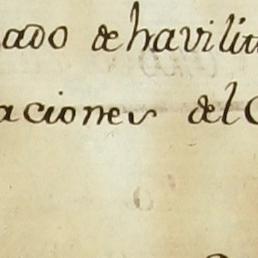 ado de havilit
aciones del C